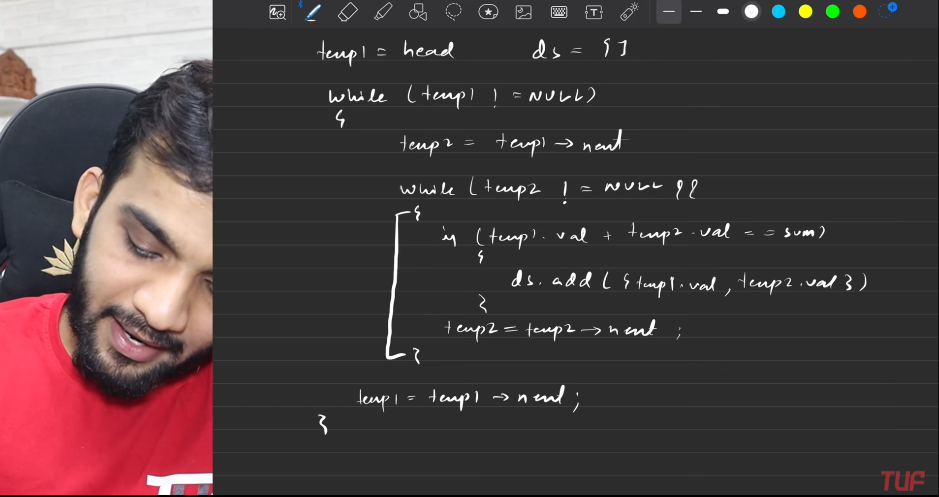 temp1 = head ds = { }
while (temp1 ! = NULL)
{
temp2 = temp1 → next
while (temp2 ! = NULL &&
{
if (temp1.val + temp2.val = = sum)
{
ds.add({temp1.val, temp2.val})
}
temp2 = temp2 → next ;
}
temp1 = temp1 → next ;
}
TUF